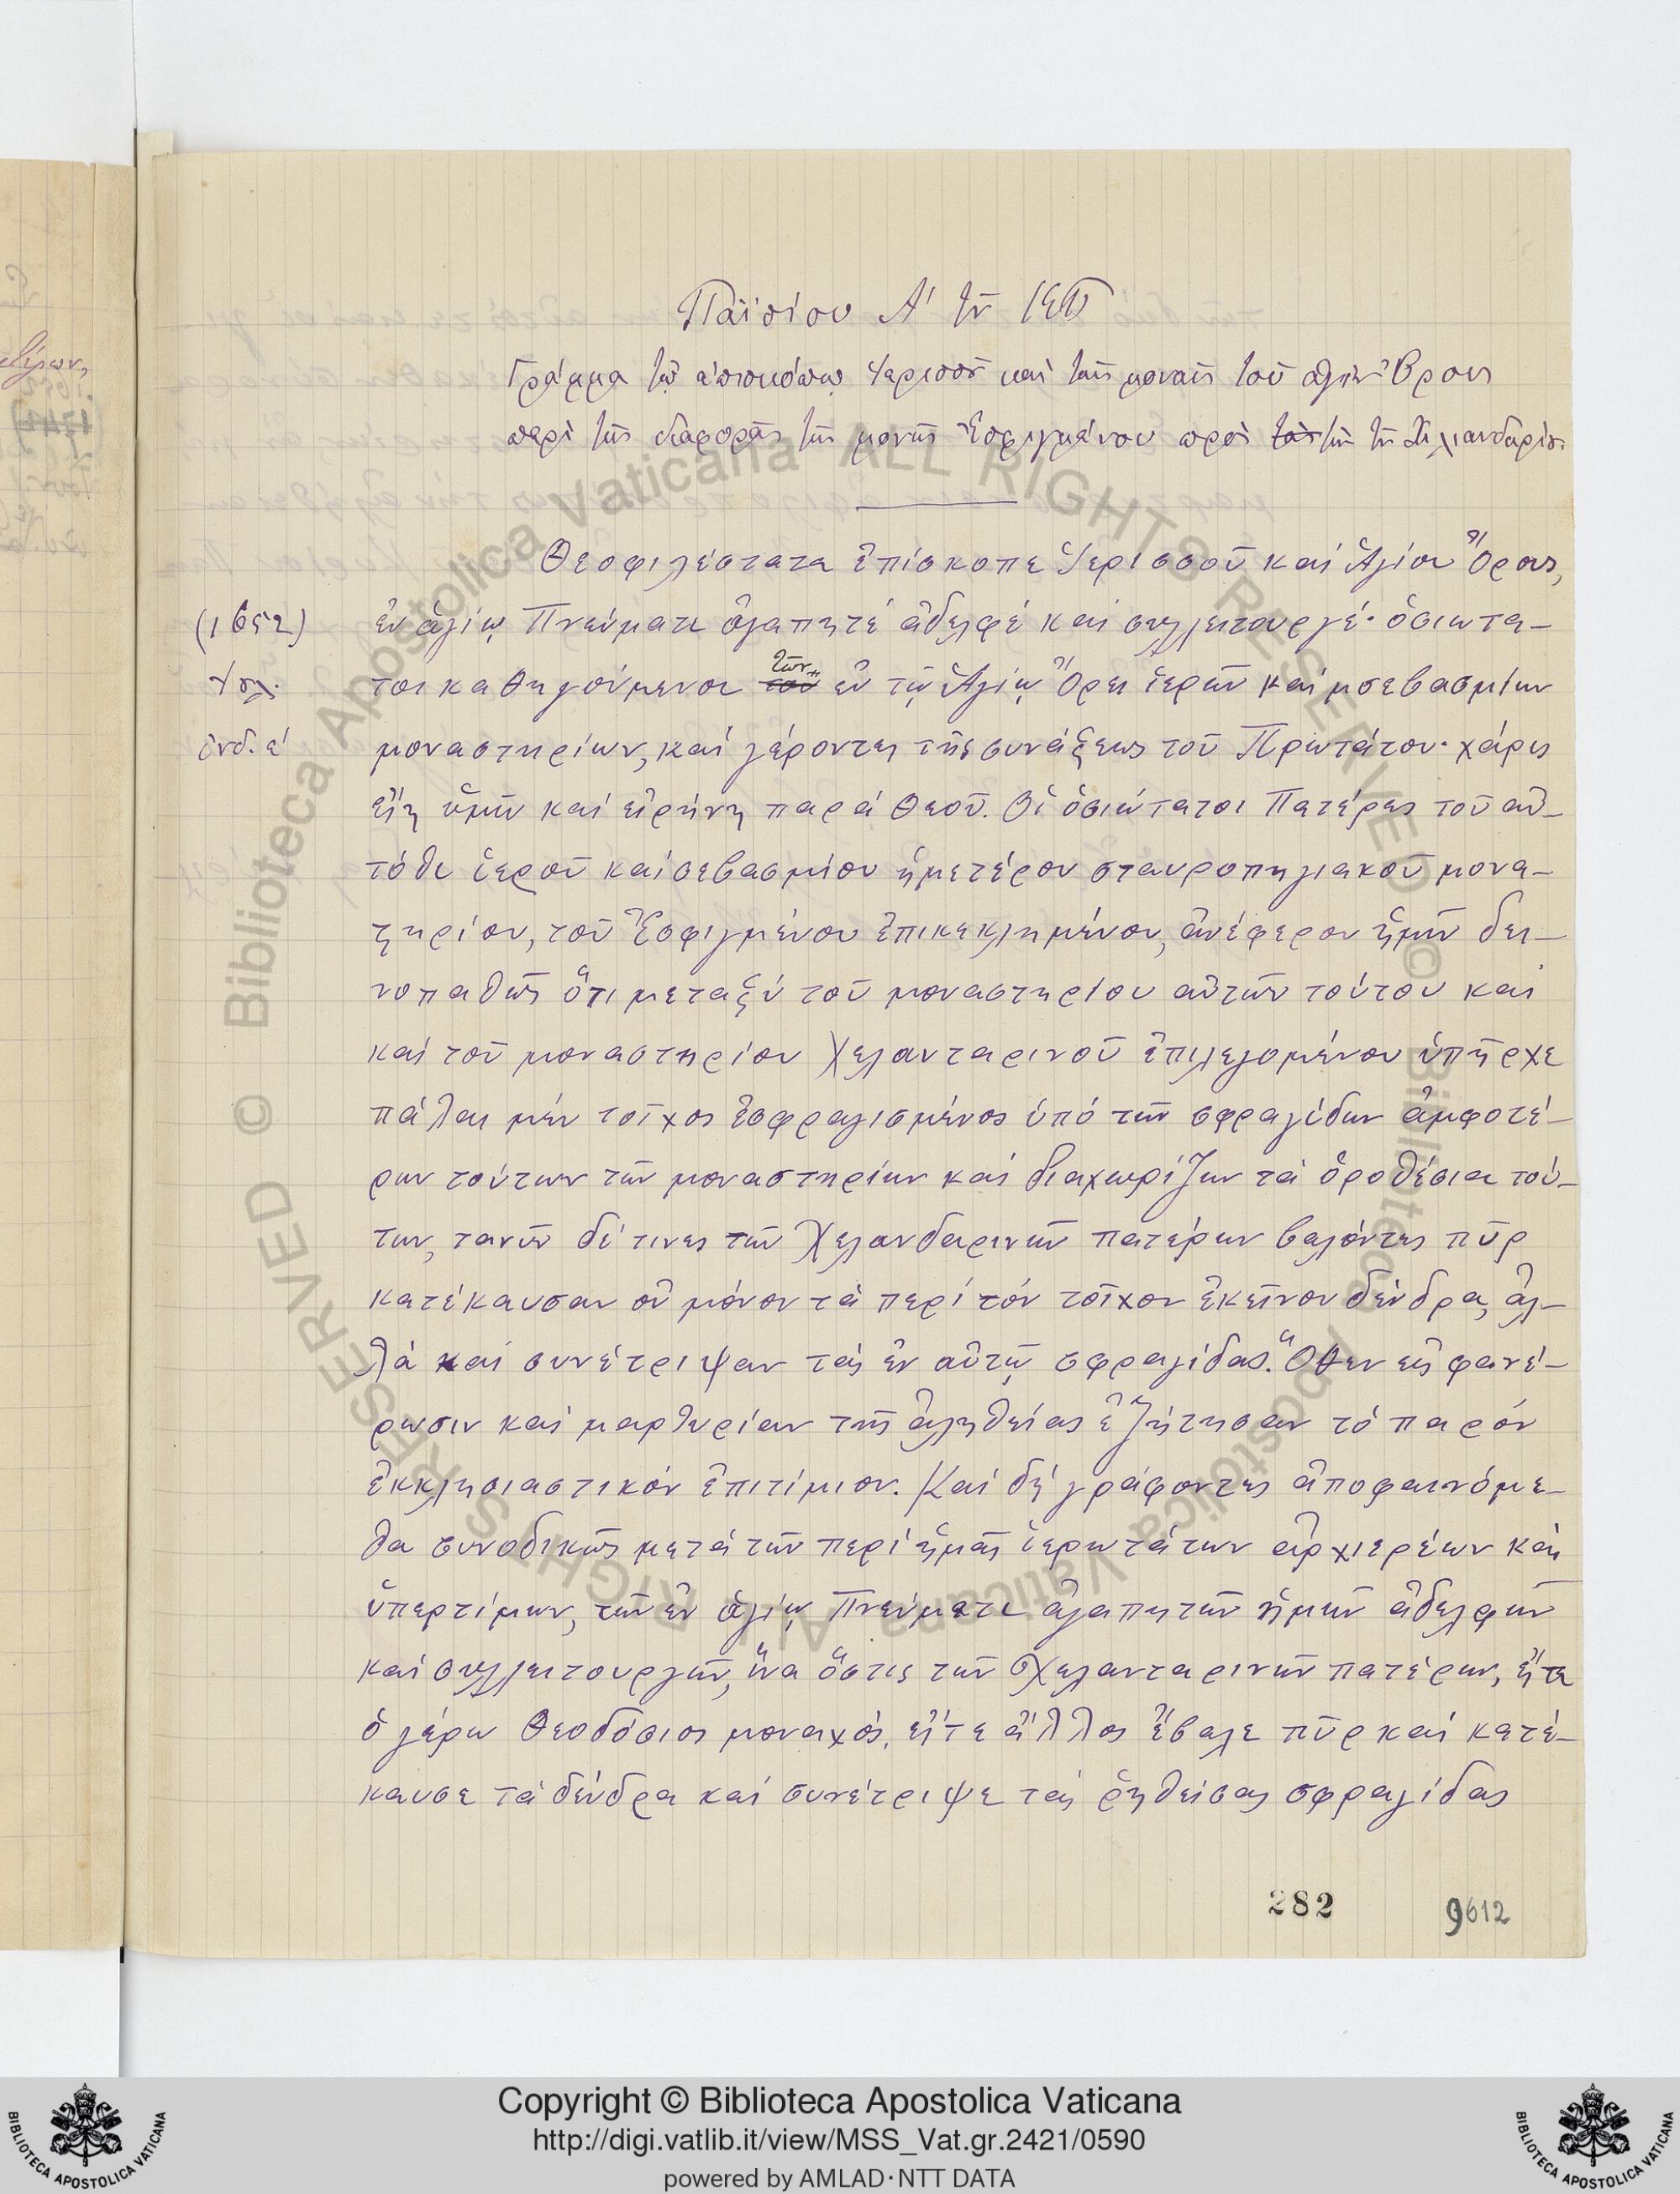 Παϊσίου Α΄ τοῦ
Γράμμα τῷ ἐπισκόπῳ Ἱερισσοῦ καὶ ταῖς μοναῖς τοῦ ἁγίου Ὄρους
περὶ τῆς διαφορᾶς τῆς μονῆς Ἐσφιγμένου πρὸς τὴν τῶν
Θεοφιλέστατε ἐπίσκοπε Ἱερισσοῦ καὶ Ἁγίου Ὄρους,
(1652) ἐν ἁγίῳ Πνεύματι ἀγαπητὲ ἀδελφὲ καὶ συλλειτουργέ· ὁσιώτα-
τοι καθηγούμενοι τῶν ἐν τῷ Ἁγίῳ Ὄρει ἱερῶν καὶ σεβασμίων
ἰνδ. ε΄ μοναστηρίων, καὶ γέροντες τῆς συνάξεως τοῦ Πρωτάτου· χάρις
εἴη ὑμῖν καὶ εἰρήνη παρὰ Θεοῦ. Οἱ ὁσιώτατοι Πατέρες τοῦ αὐ-
τόθι ἱεροῦ καὶ σεβασμίου ἡμετέρου σταυροπηγιακοῦ μονα-
στηρίου, τοῦ Ἐσφιγμένου ἐπικεκλημένου, ἀνέφερον ἡμῖν δει-
νοπαθῶς ὅτι μεταξὺ τοῦ μοναστηρίου αὐτῶν τούτου καὶ
καὶ τοῦ μοναστηρίου Χελανταρινοῦ ἐπιλεγομένου ὑπῆρχε
πάλαι μὲν τοῖχος ἐσφραγισμένος ὑπὸ τῶν σφραγίδων ἀμφοτέ-
ρων τούτων τῶν μοναστηρίων καὶ διαχωρίζων τὰ ὁροθέσια τού-
των, τανῦν δέ τινες τῶν Χελανδαρινῶν πατέρων βαλόντες πῦρ
κατέκαυσαν οὐ μόνον τὰ περὶ τὸν τοῖχον ἐκεῖνον δένδρα, ἀλ-
λὰ καὶ συνέτριψαν τὰς ἐν αὐτῷ σφραγίδας. Ὅθεν εἰς φανέ-
ρωσιν καὶ μαρτυρίαν τῆς ἀληθείας ἐζήτησαν τὸ παρόν
ἐκκλησιαστικὸν ἐπιτίμιον. Καὶ δὴ γράφοντες ἀποφαινόμε-
θα συνοδικῶς μετὰ τῶν περὶ ἡμᾶς ἱερωτάτων ἀρχιερέων καὶ
ὑπερτίμων, τῶν ἐν ἁγίῳ Πνεύματι ἀγαπητῶν ἡμῶν ἀδελφῶν
καὶ συλλειτουργῶν, ἵνα ὅστις τῶν Χελανταρινῶν πατέρων, εἴτε
ὁ γέρων Θεοδόσιος μοναχός, εἴτε ἄλλος ἔβαλε πῦρ καὶ κατέ-
καυσε τὰ δένδρα καὶ συνέτριψε τὰς ῥηθείσας σφραγίδας
282 9612
Copyright © Biblioteca Apostolica Vaticana
http://digi.vatlib.it/view/MSS_Vat.gr.2421/0590
powered by AMLAD·NTT DATA